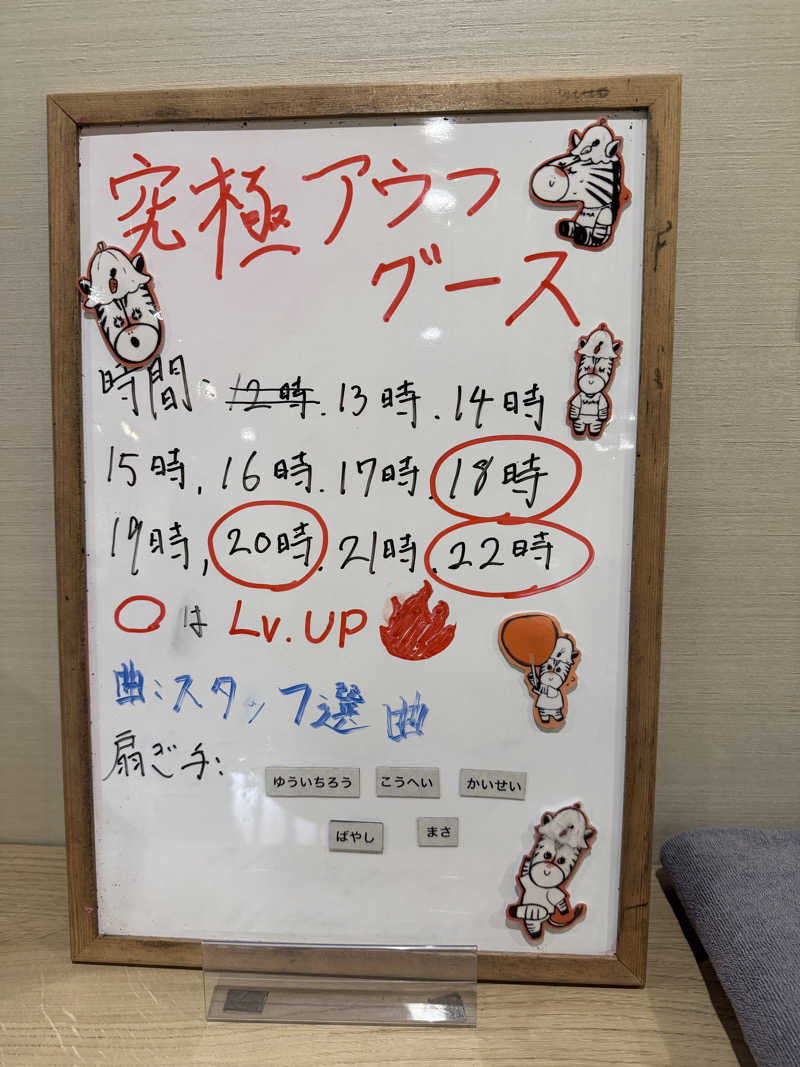 究極アウフ
グース
時間:12時.13時.14時
15時,16時.17時.18時
19時,20時.21時.22時
○はLv.UP
曲:スタッフ選曲
扇ぎ手:
ゆういちろう こうへい かいせい
ばやし まさ